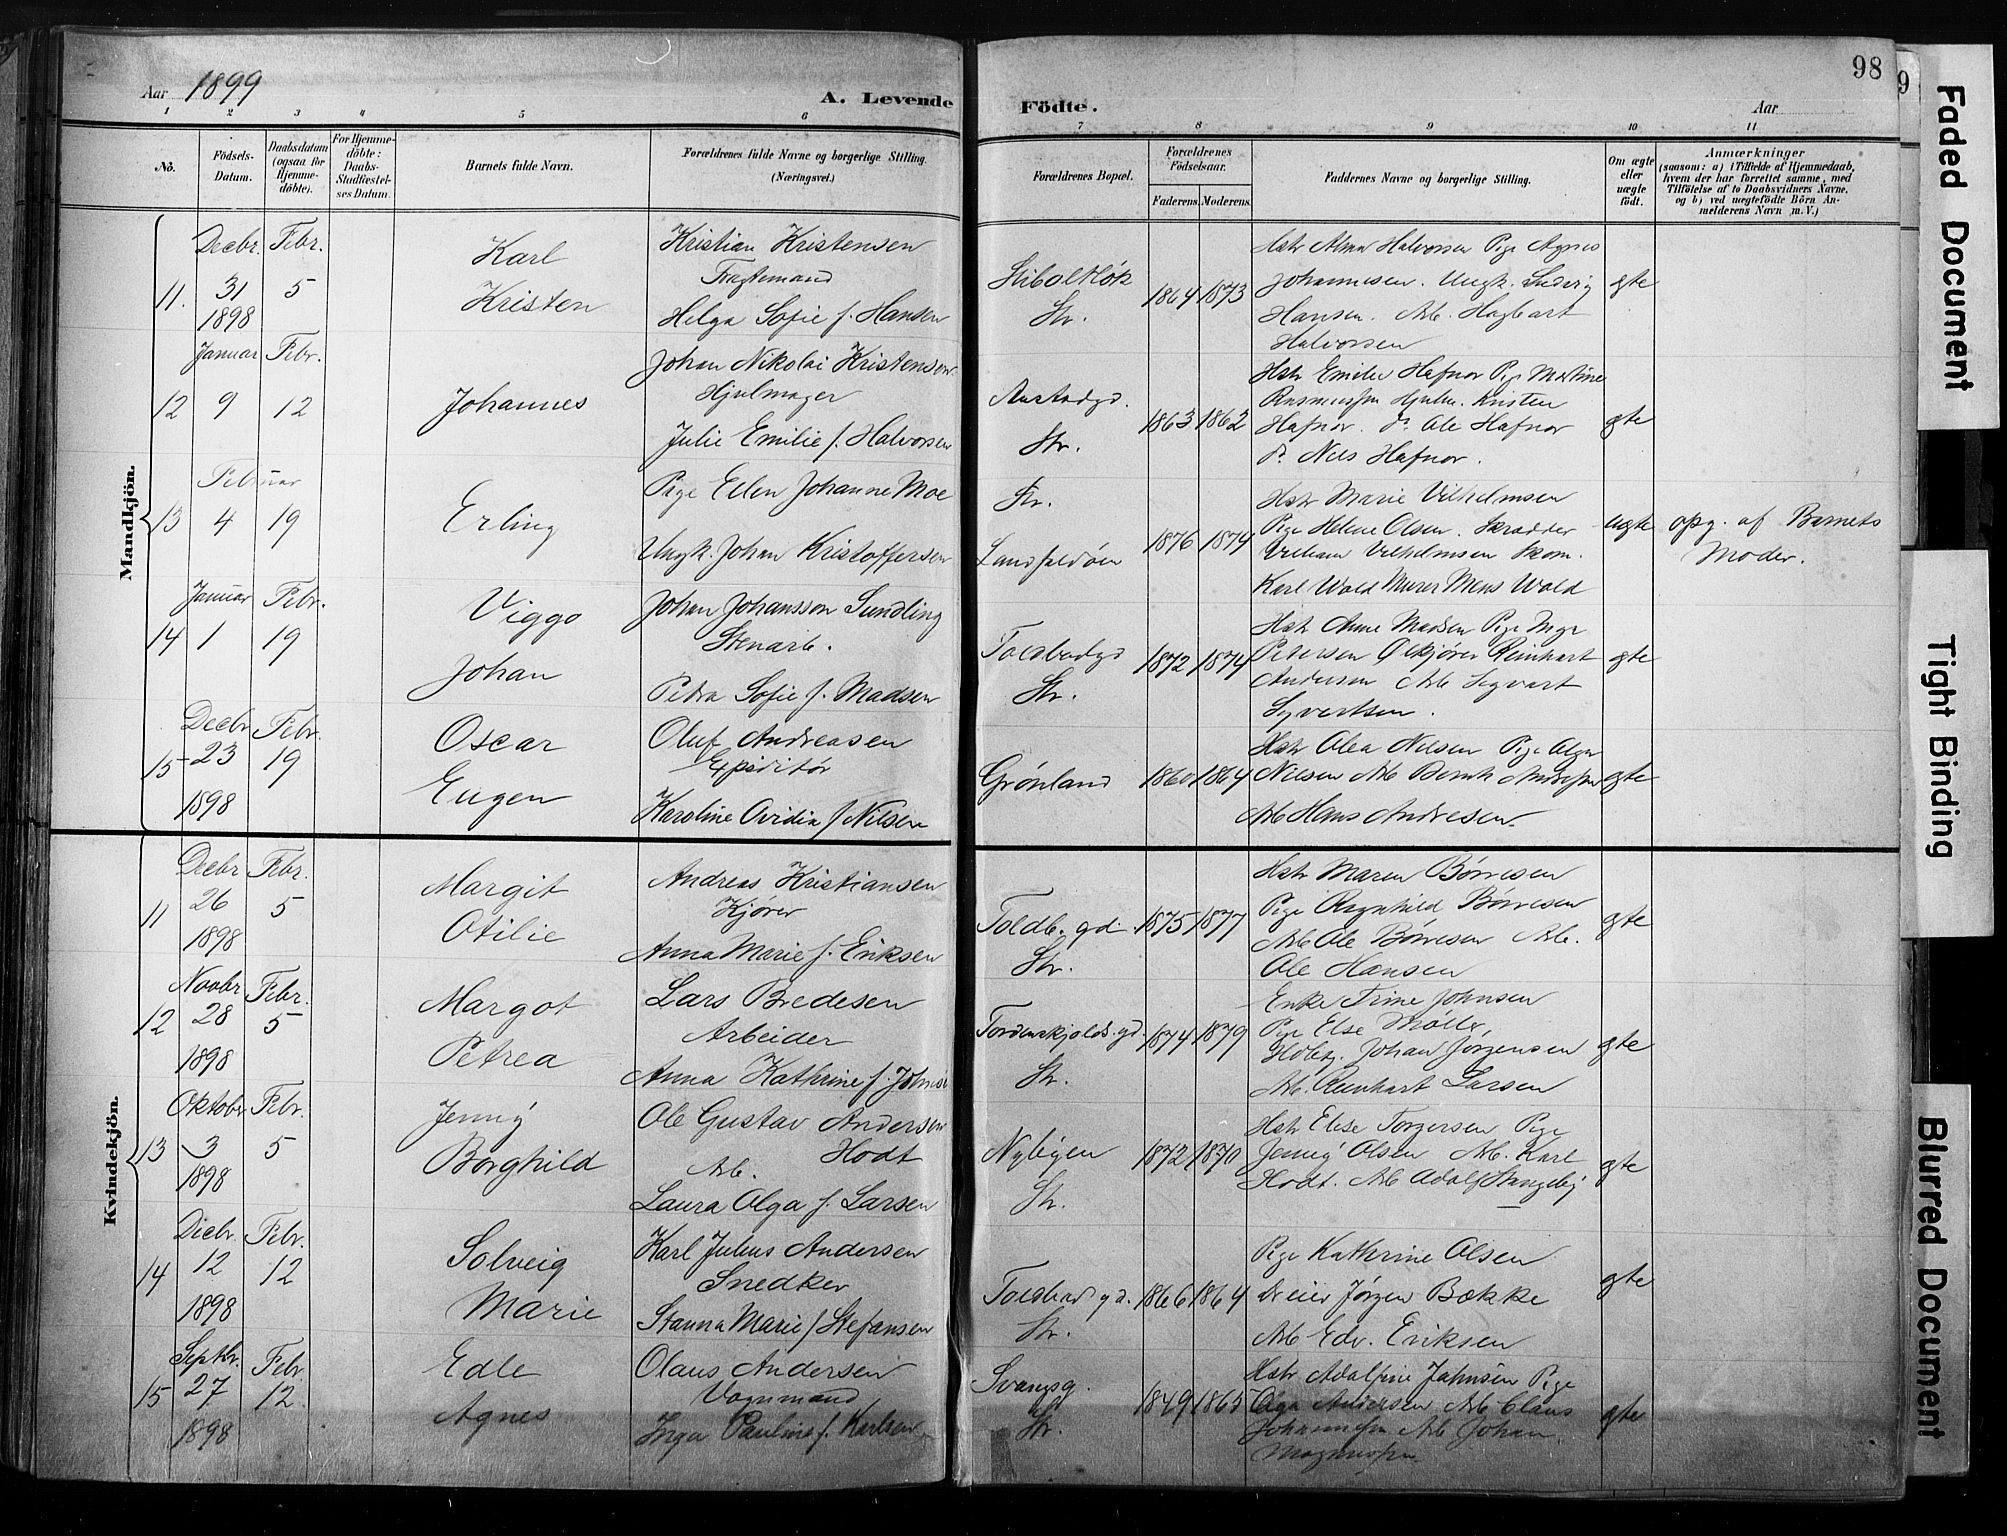 Aar 1899
A. Levende
Födte.
Aar
98
1 2 3 4 5 6
7 8 9 10 11
No.
Födsels-
Datum.
Daabsdatum
(ogsaa for
Hjemme-
döbte).
For Hjemme-
döbte:
Daabs-
Stadfæstel-
ses Datum.
Barnets fulde Navn.
Forældrenes fulde Navne og borgerlige Stilling.
(Næringsvei.)
Forældrenes Bopæl.
Forældrenes
Födselsaar.
Faderens. Moderens.
Faddernes Navne og borgerlige Stilling.
Om ægte
eller
uægte
födt.
Anmærkninger
(saasom: a) i Tilfælde af Hjemmedaab,
hvem der har forrettet samme, med
Tilföielse af to Daabsvidners Navne,
og b) ved uægtefödte Börn An-
melderens Navn m. V.)
Mandkjön.
11. Decbr. 31 1898
Febr. 5
Karl
Kristen
Kristian Kristensen
Fragtemand
Helga Sofie f. Hansen
Str.
1864 1873
Hstr Alma Halvorsen Pige Agnes
Johannesen. Ungk. Ludvig
Hansen. Arb. Hagbart
Halvorsen
gte
12 Januar 9
Febr. 12
Johannes
Johan Nikolai Kristensen
Hjulmager
Julie Emilie f. Halvorsen
Str.
1863 1862
Hstr Emilie Hafnor Pige Martine
Rasmussen Hjulm. Kristen
Hafnor. do Ole Hafnor
do Nils Hafnor.
gte
13 Februar 4 19
Erling
Pige Ellen Johanne Moe
Ungk. Johan Kristoffersen
Str.
Landfaldøen
1876 1879
Hstr Marie Vilhelmsen
Pige Helene Olsen. Skrædder
Vilhelmsen Skom.
Karl Wold Murer Mens Wold
ugte
opg. af Barnets
Moder.
14 Januar 1
Febr. 19
Viggo
Johan
Johan Johansson Sundling
Stenarb.
Petra Sofie f. Madsen
Toldbodgd
Str.
1872 1874
Hstr Anne Madsen Pige Inga
Petersen Ølkjører Reinhart
Andersen Arb Sigvart
Syvertsen.
gte
15 Decbr 23 1898
Febr. 19
Oscar
Eugen
Oluf Andreasen
Expeditør
Karoline Ovidia f Nilsen
Grønland
1860 1864
Hstr Olea Nilsen Pige Olga
Nilsen Arb Bernh. Andresen
Arb Hans Andresen.
gte
Kvindekjön.
11 Decbr 26 1898
Febr. 5
Margit
Otilie
Andreas Kristiansen
Kjører
Anna Marie f. Eriksen
Toldb. gd.
Str.
1875 1877
Hstr Maren Børresen
Pige Ragnhild Børresen
Arb Ole Børresen Arb.
Ole Hansen
gte
12 Novbr 28 1898
Febr. 5
Margot
Petrea
Lars Bredesen
Arbeider
Anna Kathrine f. Johnse
Tordenskjolds.gd.
Str.
1874 1879
Enke Trine Johnsen
Pige Else Møller,
Johan Jørgensen
Arb. Reinhart Larsen
gte
13 Oktober 3 1898
Febr. 5
Jenny
Borghild
Ole Gustav Andersen
Hodt
Arb.
Laura Olga f. Larsen
Nybyen
Str.
1872 1870
Hstr Elise Torgersen Pige
Jenny Olsen Arb. Karl
Hodt. Arb Adolf Stangeby
gte
14 Decbr. 12 1898
Febr. 12
Solveig
Marie
Karl Julius Andersen
Snedker
Stanna Marie f Stefansen
Toldbod gd.
Str.
1866 1864
Pige Kathrine Olsen
Dreier Jørgen Bække
Arb Edv. Eriksen
gte
15 Septbr. 27 1898
Febr 12
Edle
Agnes
Olaus Andersen
Vognmand
Inga Pauline f. Karlsen
Svangsg.
Str.
1849 1865
Hstr Adolfine Jahnsen Pige
Olga Andersen Arb Claus
Johannesen Arb Johan
Magnussen
gte
9
Faded Document
Tight Binding
Blurred Document